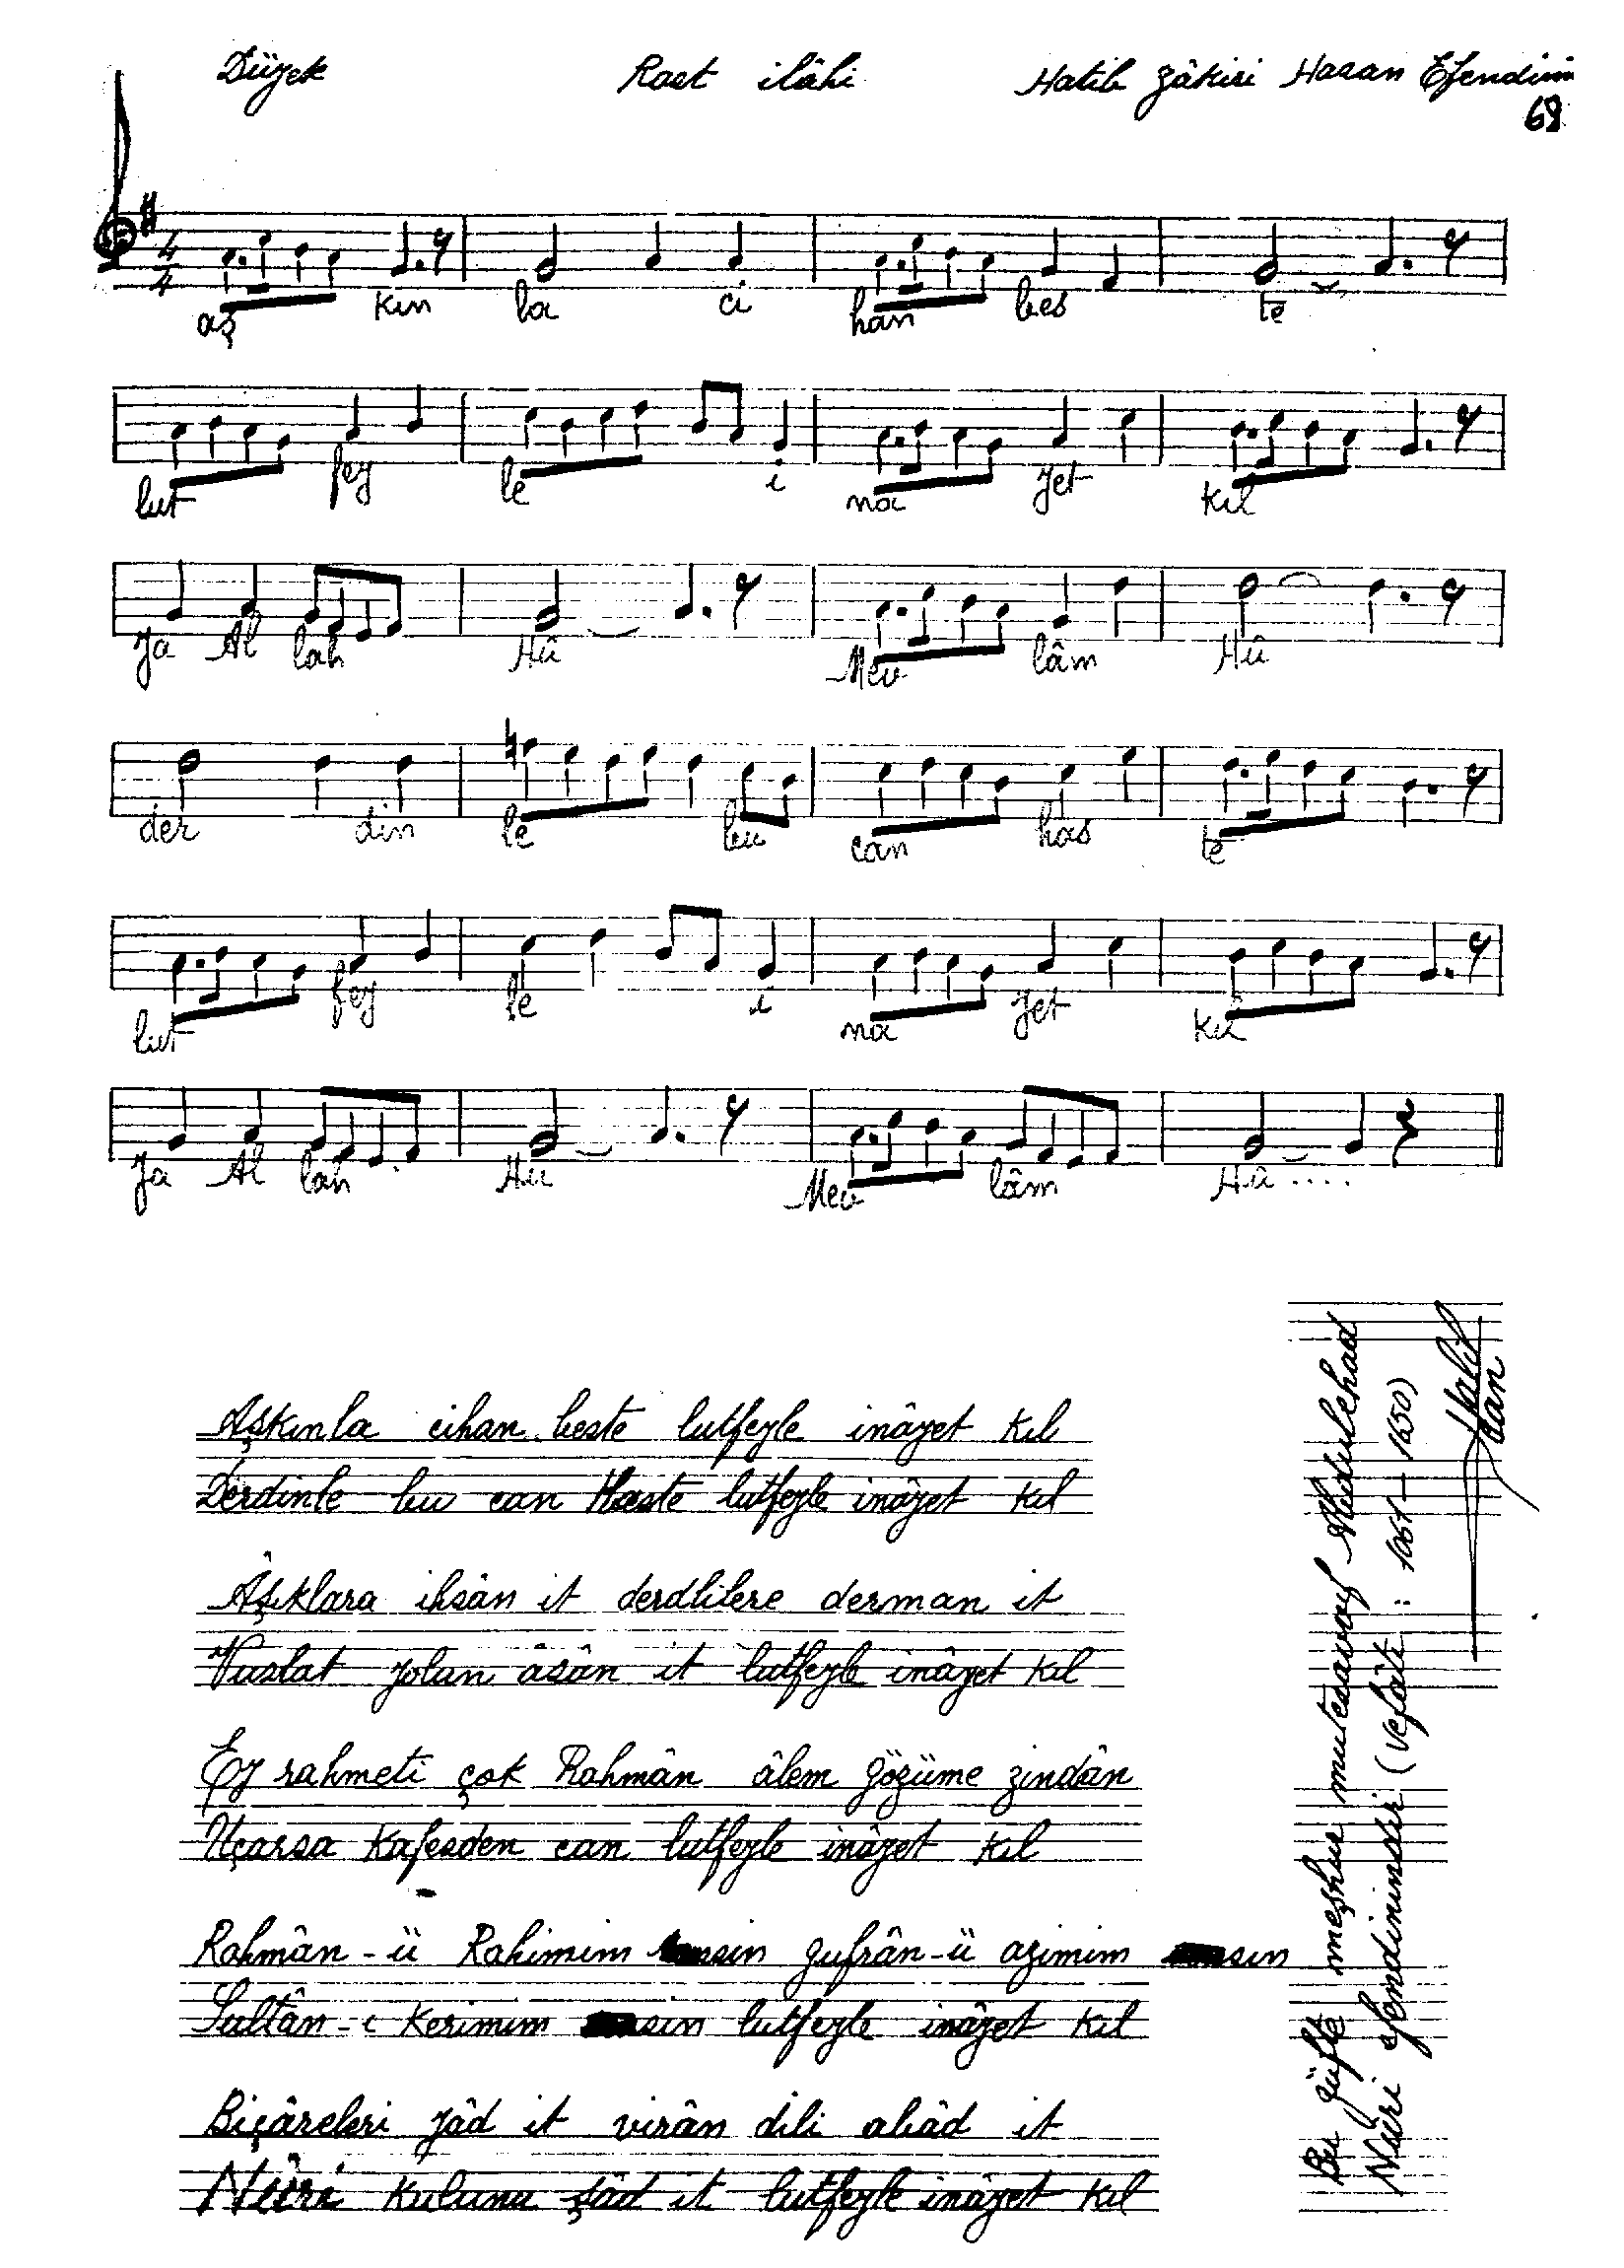 Düyek Rast ilâhi Hatib Zâkiri Hasan Efendinin
69
4
4
aş kın la ci han bes te
lut fey le i na yet kıl
Ya Al lah Hû Mev lâm Hû
der din le bu can has te
lut fey le i na yet kıl
Ya Al lah Hu Mev lâm Hû ....
Aşkınla cihan beste lutfeyle inâyet kıl
Derdinle bu can Haste lutfeyle inâyet kıl
Âşıklara ihsân it derdlilere derman it
Vuslat yolun âsân it lutfeyle inâyet kıl
Ey rahmeti çok Rahmân âlem gözüme zindân
Uçarsa Kafesden can lutfeyle inâyet kıl
Rahmân-ü Rahimim sin gufrân-ü azimim sin
Sultân-ı Kerimim sin lutfeyle inâyet kıl
Biçâreleri yâd it virân dili abâd it
Nûri kulunu şâd it lutfeyle inâyet kıl
Bu güfte meşhur mutesavvıf Abdulehad
Nûri efendinindir (vefâtı: 1061 - 1650)
Halil
Can